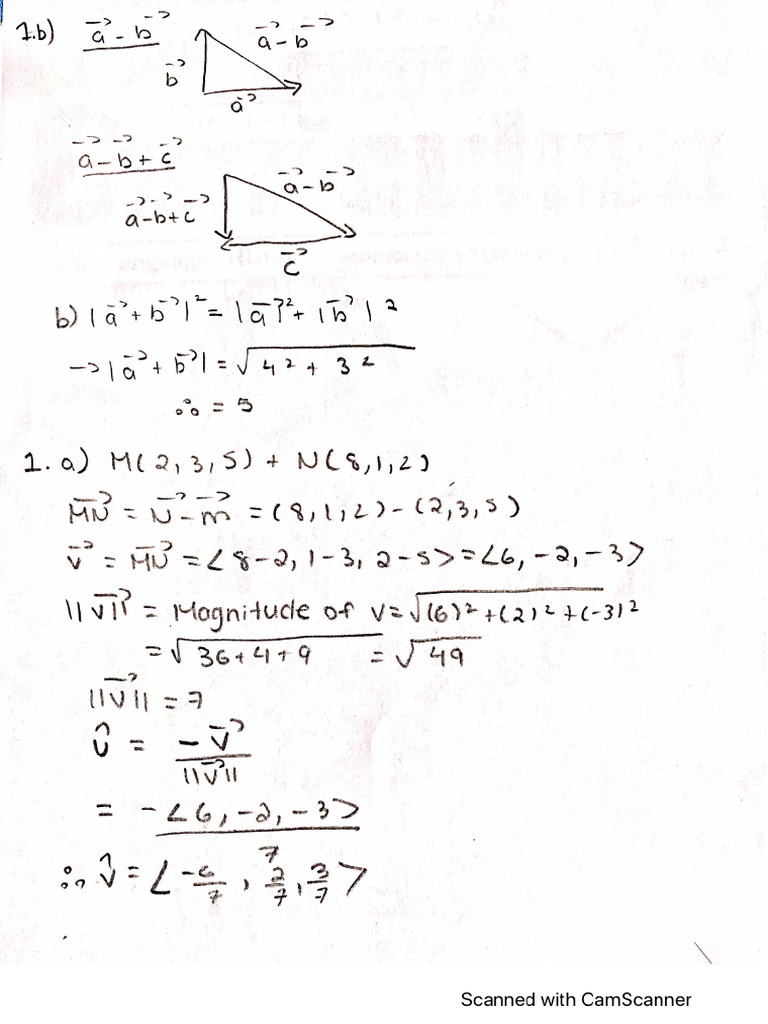 1.b) a⃗ - b⃗
a⃗ - b⃗
b⃗
a⃗
a⃗ - b⃗ + c⃗
a⃗ - b⃗
a⃗ - b⃗ + c⃗
c⃗
b) |a⃗ + b⃗|² = |a⃗|² + |b⃗|²
→ |a⃗ + b⃗| = √4² + 3²
∴ = 5
1. a) M(2,3,5) + N(8,1,2)
M⃗N = N⃗ - m⃗ = (8,1,2) - (2,3,5)
v⃗ = M⃗N = <8-2, 1-3, 2-5> = <6, -2, -3>
||v⃗|| = Magnitude of V = √(6)² + (2)² + (-3)²
= √36+4+9 = √49
||v⃗|| = 7
û = -v⃗ / ||v⃗||
= -<6, -2, -3> / 7
∴ û = <-6/7, 2/7, 3/7>
Scanned with CamScanner